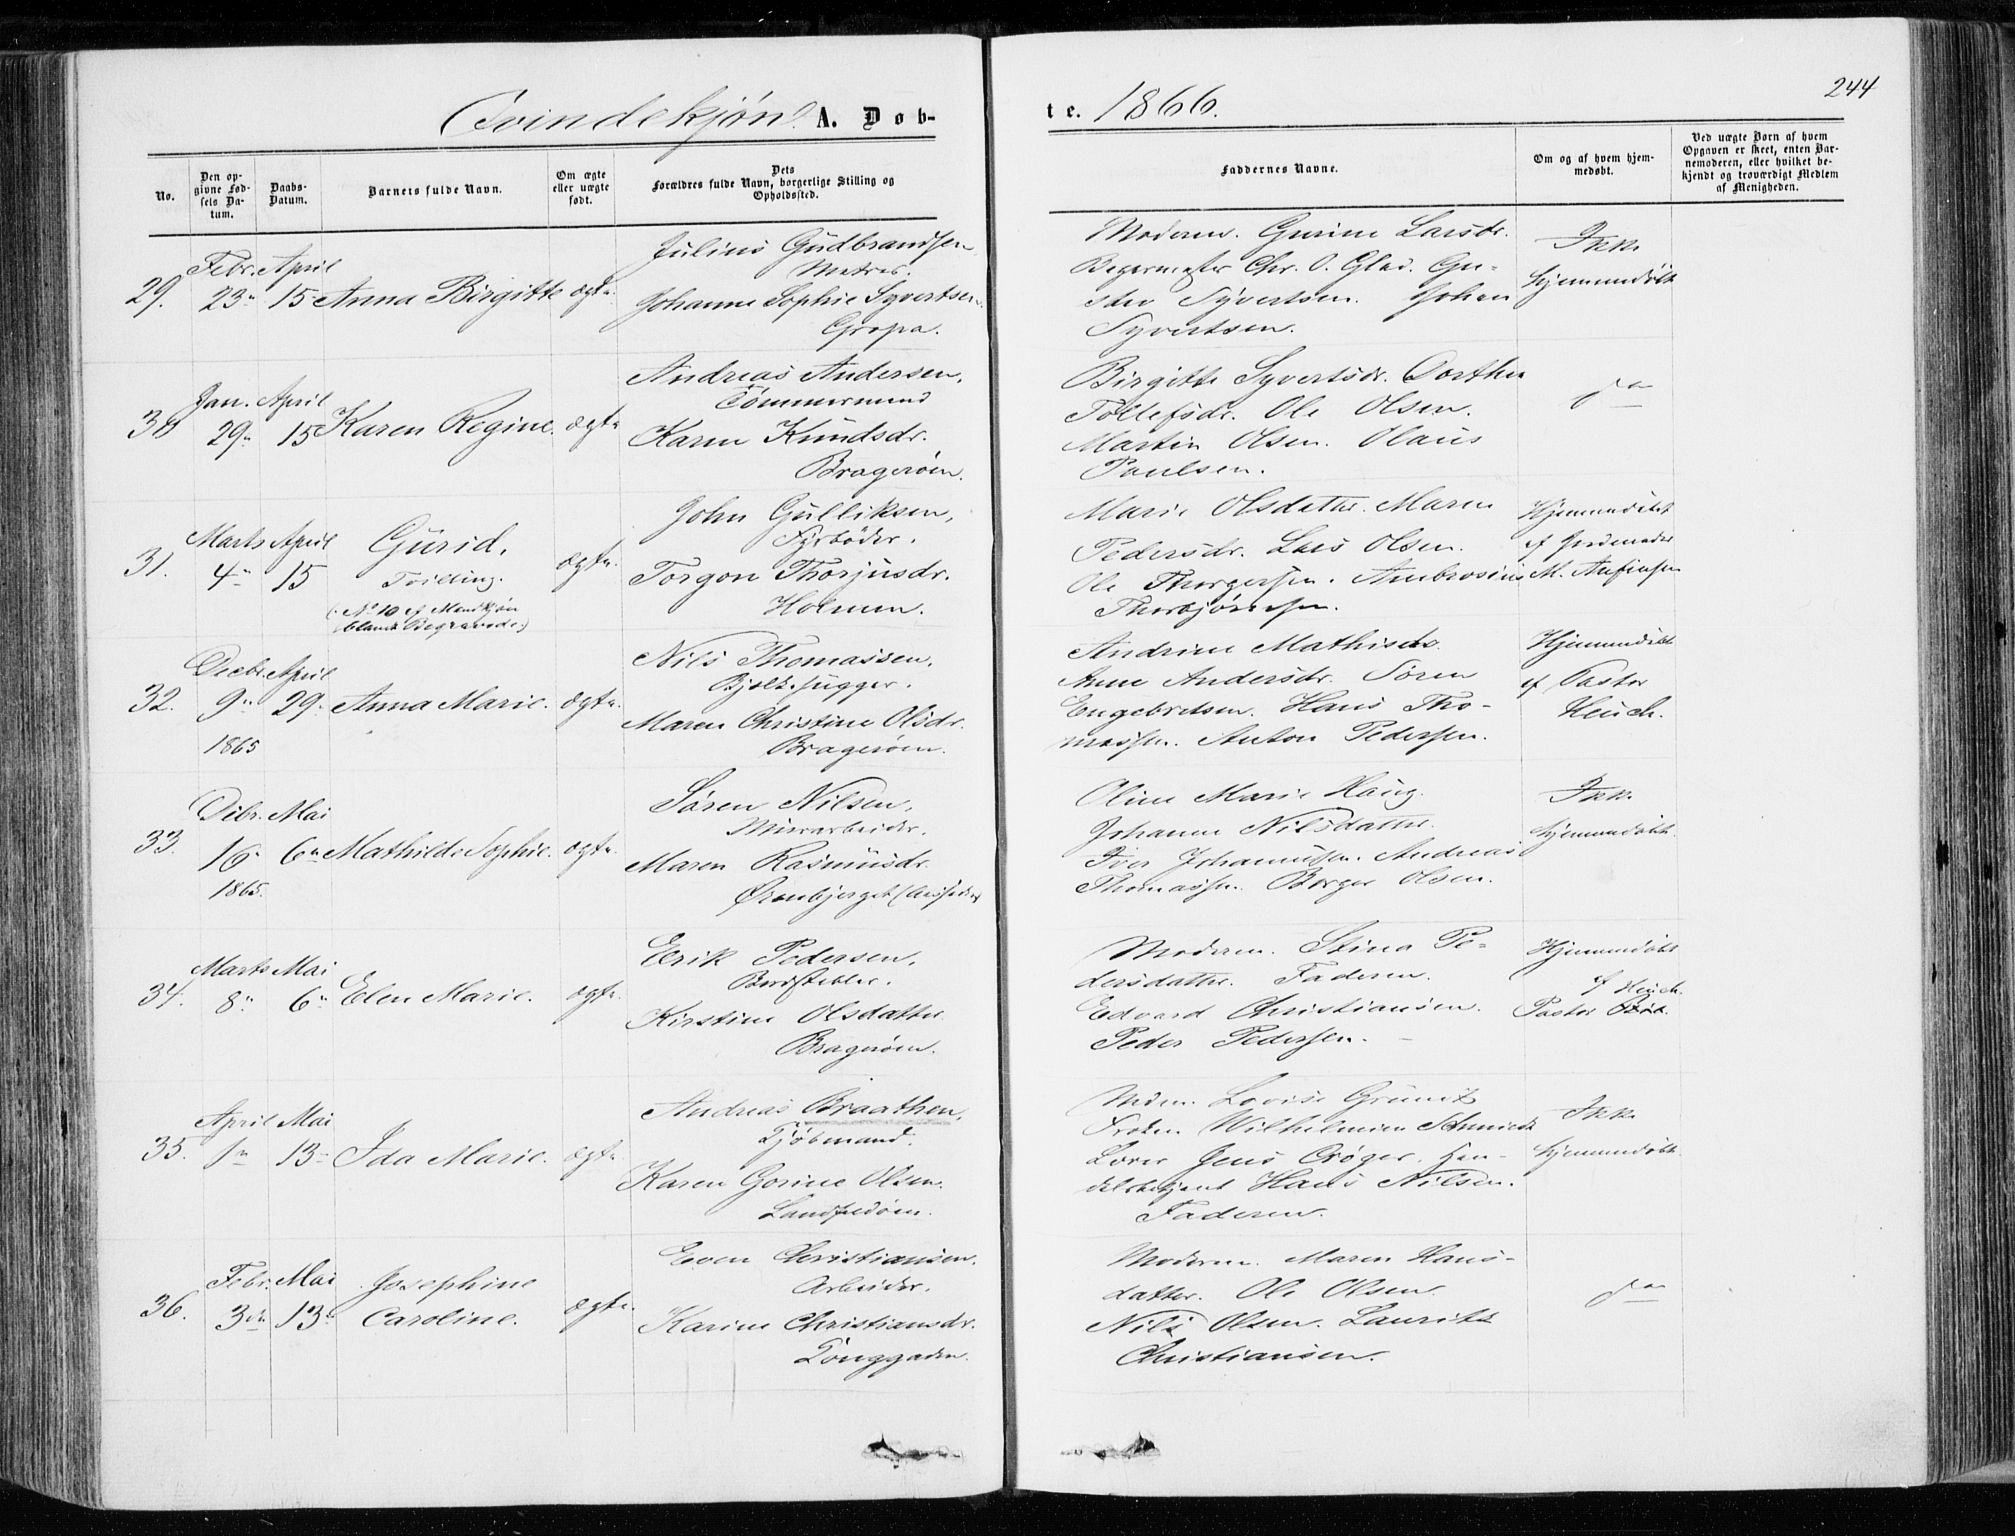 244
Qvindekjøn. A. Døb-
te. 1866.
No.
Den op-
givne Fød-
sels Da-
tum.
Daabs-
Datum.
Barnets fulde Navn.
Om ægte
eller uægte
født.
Dets
Forældres fulde Navn, borgerlige Stilling og
Opholdssted.
Faddernes Navne.
Om og af hvem hjem-
medøbt.
Ved uægte Børn af hvem
Opgaven er skeet, enten Bar-
nemoderen, eller hvilket be-
kjendt og troværdigt Medlem
af Menigheden.
29.
Febr.
23
April
15
Anna Birgitte
ægte
Julius Gudbrandsen
Matros.
Johanne Sophie Syvertsen
Gropa.
Moderen. Gurine Larsdr.
Bøgermester Chr. O. Glad. Gu-
stav Syvertsen. Johan
Syvertsen.
Ikke
hjemmedøbt
30
Jan.
29
April
15
Karen Regine.
ægte
Andreas Andersen,
Tømmermand
Karen Knudsdr.
Bragerøen.
Birgitte Syvertsdr. Dorthea
Tollefsdr. Ole Olsen.
Martin Olsen. Olaus
Paulsen.
do
31.
Marts
4
April
15
Gurid,
Tvilling.
(No 10 af Mandkjøn
blandt Begravede.)
ægte
John Gulliksen,
Fyrbøder.
Torgon Thorjusdr.
Holmen.
Marie Olsdatter. Maren
Pedersdr. Lars Olsen.
Ole Thorgersen. Ambrosius
Thorbjørnsen.
Hjemmedøbt
af Jordemoder
M. Anfinsen
32.
Decbr.
9
1865
April
29
Anna Marie.
ægte
Nils Thomassen,
Bjelkehugger.
Maren Christine Olsdr.
Bragerøen.
Andrine Mathisdr.
Anne Andersdr. Søren
Engebretsen. Hans Tho-
massen. Anton Pedersen.
Hjemmedøbt
af Pastor
Heuch.
33.
Dcbr.
16
1865.
Mai
6
Mathilde Sophie.
ægte
Søren Nilsen,
Murarbeider.
Maren Rasmusdr.
Oline Marie Haug.
Johanne Nilsdatter.
Iver Johannesen. Andreas
Thomassen. Borger Olsen.
Ikke
hjemmedøbt
34.
Marts
8
Mai
6
Elen Marie.
ægte
Erik Pedersen,
Bordstabler.
Kirstine Olsdatter
Bragerøen.
Moderen. Stina Pe-
dersdatter. Faderen.
Edvard Christiansen.
Peder Pedersen.
Hjemmedøbt
af Heuch.
Pastor
35.
April
1
Mai
13
Ida Marie.
ægte
Andreas Braathen,
Kjøbmand.
Karen Gorine Olsen.
Landfaldøen.
Mdm. Lovise Grüntz
Frøken Wilhelmine Schmidt
Lærer Jens Crøger. Han-
delsbetjent Hans Nilsen.
Faderen.
Ikke
hjemmedøbt
36.
Febr.
3die
Mai
13
Josephine
Caroline.
ægte
Even Christiansen.
Arbeider.
Karine Christiansdr.
Tonggaden.
Moderen. Maren Hans-
datter. Ole Olsen.
Nils Olsen. Lauritz
Christiansen.
do